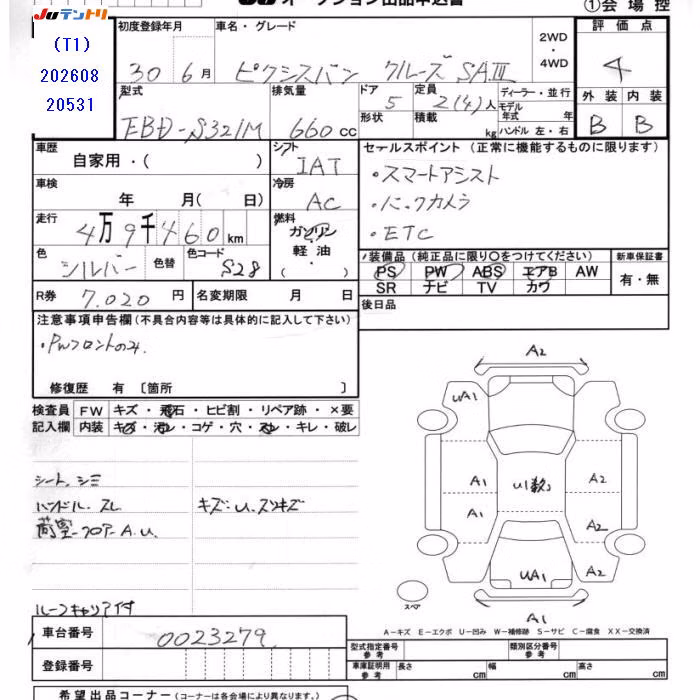 JUテントリ
(T1)
202608
20531
オークション出品申込書
①会場控
初度登録年月
車名・グレード
評価点
30 6月
ピクシスバン クルーズSAⅢ
2WD
・
4WD
4
型式
排気量
ドア
定員
ディーラー・並行
外装
内装
5
2(4)人
モデル年式 年
EBD-S321M
660cc
形状
積載
kg
ハンドル 左・右
B
B
車歴
自家用・( )
シフト
IAT
セールスポイント(正常に機能するものに限ります)
・スマートアシスト
車検
年 月( 日)
冷房
AC
・バックカメラ
走行
4万9千460km
燃料
ガソリン
・ETC
軽油
・( )
色
シルバー
色替
色コード
S28
装備品(純正品に限り○をつけてください)
新車保証書
PS PW ABS エアB AW
有・無
SR ナビ TV カワ
R券
7,020円
名変期限
月 日
後日品
注意事項申告欄(不具合内容等は具体的に記入して下さい)
・PWフロントのみ
修復歴 有〔箇所 〕
検査員
FW
キズ・飛石・ヒビ割・リペア跡・×要
記入欄
内装
キズ・汚レ・コゲ・穴・スレ・キレ・破レ
シート、シミ
ハンドル、スレ
キズ・U、スリキズ
荷室フロアーA.U.
ルーフキャリア付
A2
UA1
A1
U1数コ
A2
A1
A2
UA1
A2
スペア
A1
A-キズ E-エクボ U-凹み W-補修跡 S-サビ C-腐食 XX-交換済
車台番号
0023279
型式指定番号
参考
類別区分番号
参考
登録番号
車庫証明用
参考
長さ
cm
幅
cm
高さ
cm
希望出品コーナー(コーナーは各会場により異なります。)